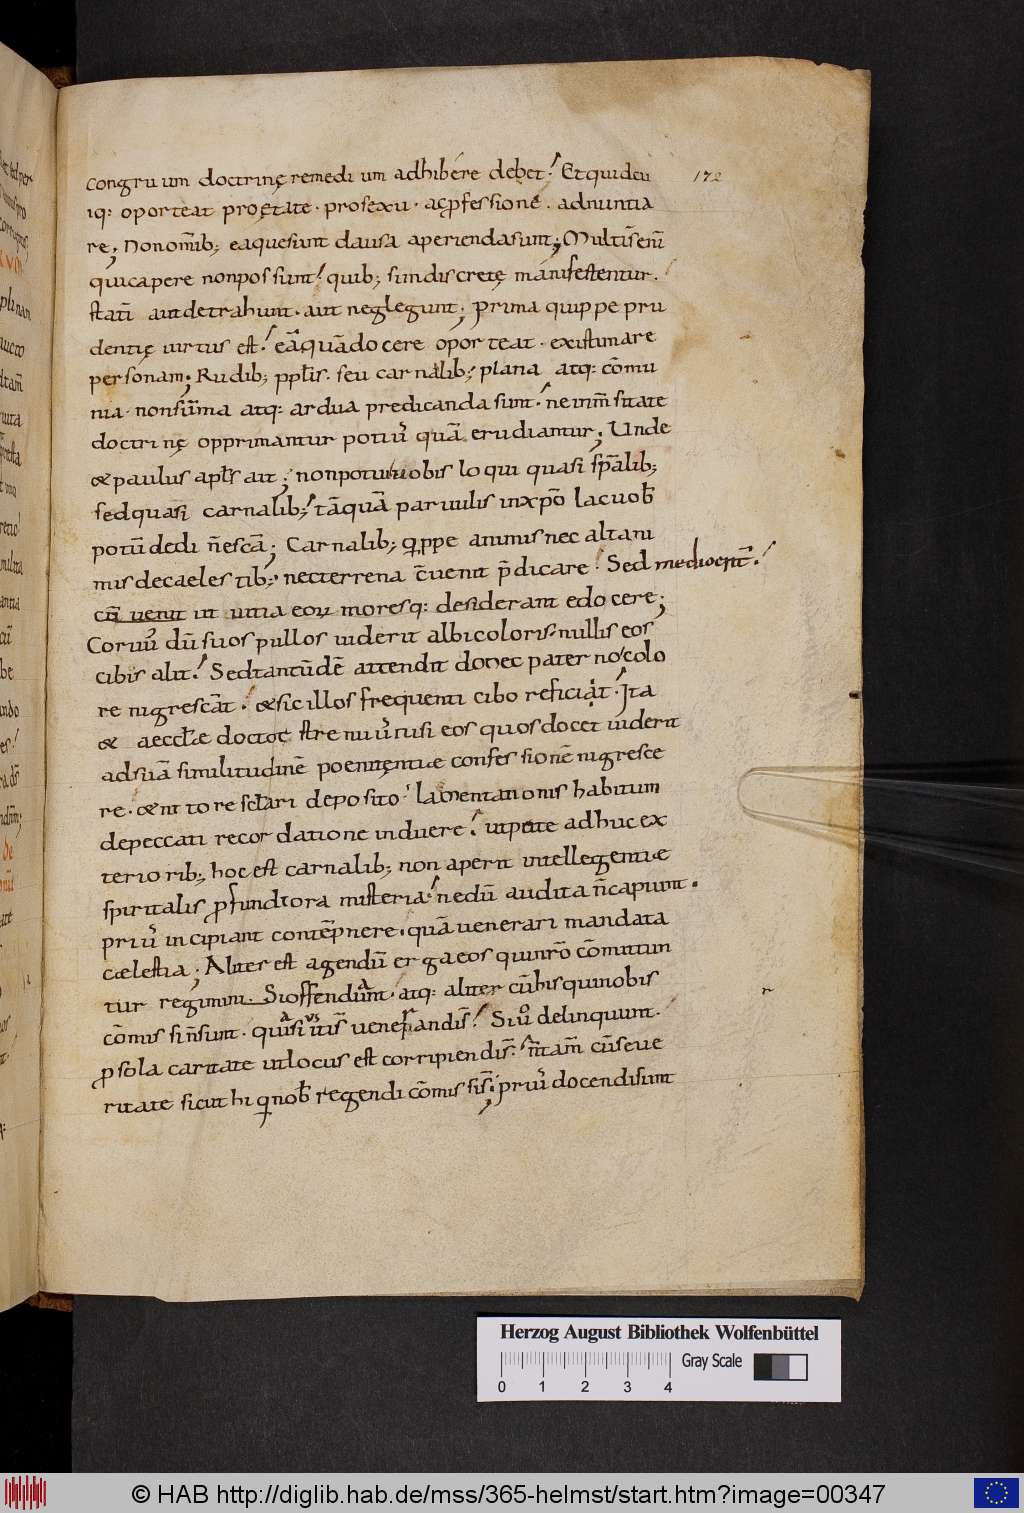 congruum doctrinę remedium adhibére debet. Et quidem
172
iq: oporteat proętate. prosexu. acp̱fessionē. adnuntia
re; Nonom̄ib; eaquesunt clausa aperiendasunt; Multis̄ eni̅
quicapere nonpossunt! quib; si indiscretę manifestentur.
stati̅ autdetrahunt. aut neglegunt; Prima quippe pru
dentię uirtus est! ea̅ qua̅docere oporteat. existimare
personam; Rudib; ppl̅is. seu carnalib; plana atq: co̅mu
nia. nonsu̅ma atq: ardua predicanda sunt. ne inm̅sitate
doctrinę opprimantur potiu' qua̅ erudiantur; Unde
& paulus apl̅s ait; nonpotui uobis loqui quasi sp̅alib;
sedquasi carnalib; ta̅qua̅ paruulis inxp̅o lac uob̅
potu̅ dedi n̅ esca̅; Carnalib; q̣ppe animis nec altani
misdecaelestib; necterrena c̅uenit p̅dicare! Sed mediocrit̅.
c̅ uenit ut uitia eoꝝ moresq: desiderant edocere;
Coruu' du̅ suos pullos uiderit albicoloris. nullis eos
cibis alit! Sedtantu̅de̅ attendit donec paterno colo
re nigresca̅t. & sic illos frequenti cibo reficiat. Ita
& aeccl̅ae doctor strenuu' nisi eos quosdocet uiderit
adsua̅ similitudine̅ poenitęntiae confessione̅ nigresce
re. & nitore sc̅lari deposito. lamentationis habitum
depeccati recordatione induere! utpote adhuc ex
teriorib; hoc est carnalib; non aperit intellegentiae
spiritalis ꝓfundiora misteria. nedu̅ audita n̅capiunt.
priu' incipiant conte̅pnere. qua̅ uenerari mandata
caelestia; Aliter est agendu̅ ergaeos quinr̅o co̅mittun
tur regimini. Sioffendunt. atq: aliter cu̅hisquinobis
r
co̅missi n̅sunt. quisi iustis̄ uenerandis̄! Siu° delinquunt.
ꝓsola caritate utlocus est corripiendis̄. n̅tam̅ cu̅seue
ritate sicut hi q̣nob̅ regendi co̅missis̄; priu' docendisunt
Herzog August Bibliothek Wolfenbüttel
0 1 2 3 4
Gray Scale
© HAB http://diglib.hab.de/mss/365-helmst/start.htm?image=00347